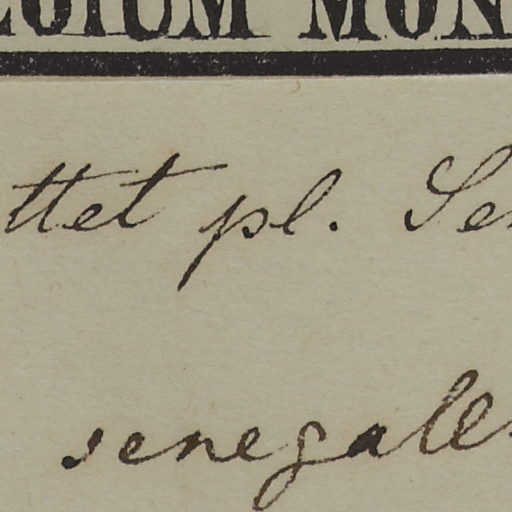 EGIUM MON
ttet pl. Se
senegalle